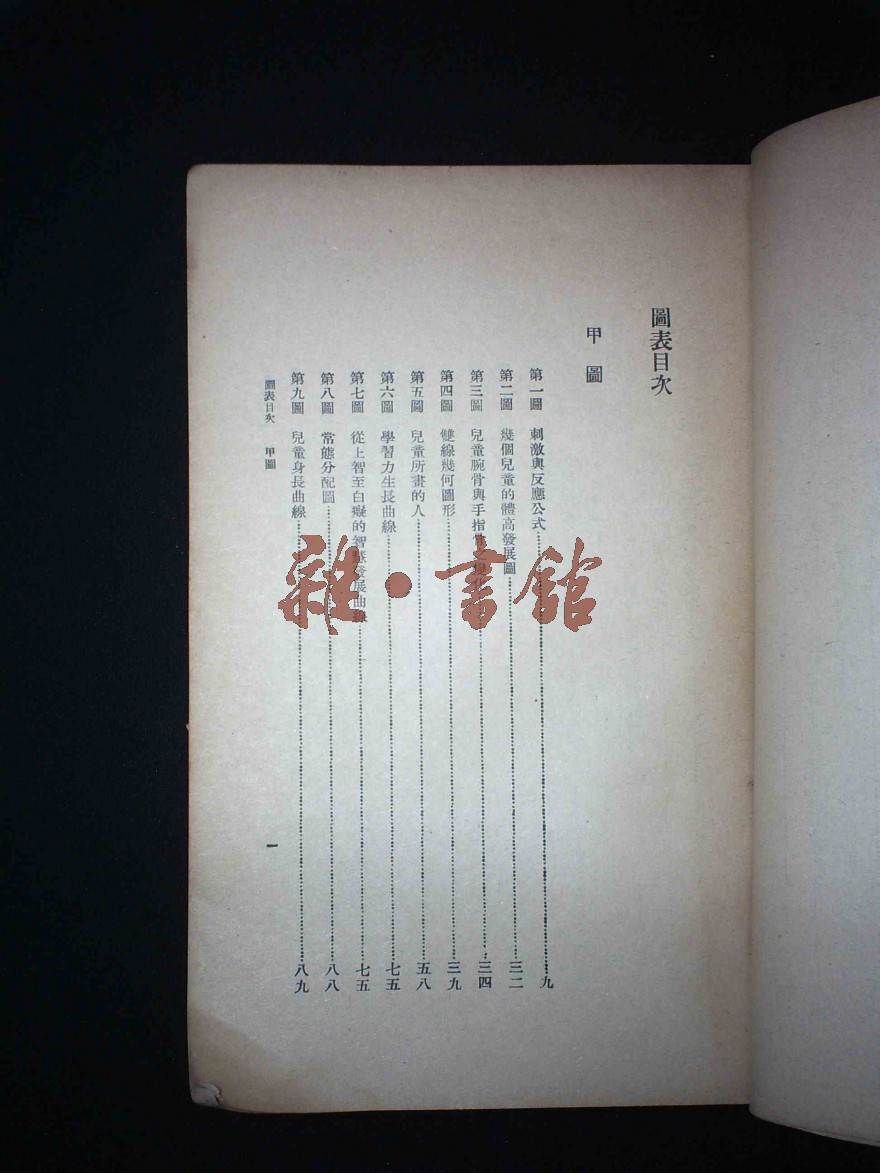 圖表目次
甲圖
第一圖 刺激與反應公式……九
第二圖 幾個兒童的體高發展圖……三二
第三圖 兒童腕骨與手指骨之變化……三四
第四圖 雙線幾何圖形……三九
第五圖 兒童所畫的人……五八
第六圖 學習力生長曲線……七五
第七圖 從上智至白癡的智慧發展曲線……七五
第八圖 常態分配圖……八八
第九圖 兒童身長曲線……八九
圖表目次 甲圖 一
雜·書館